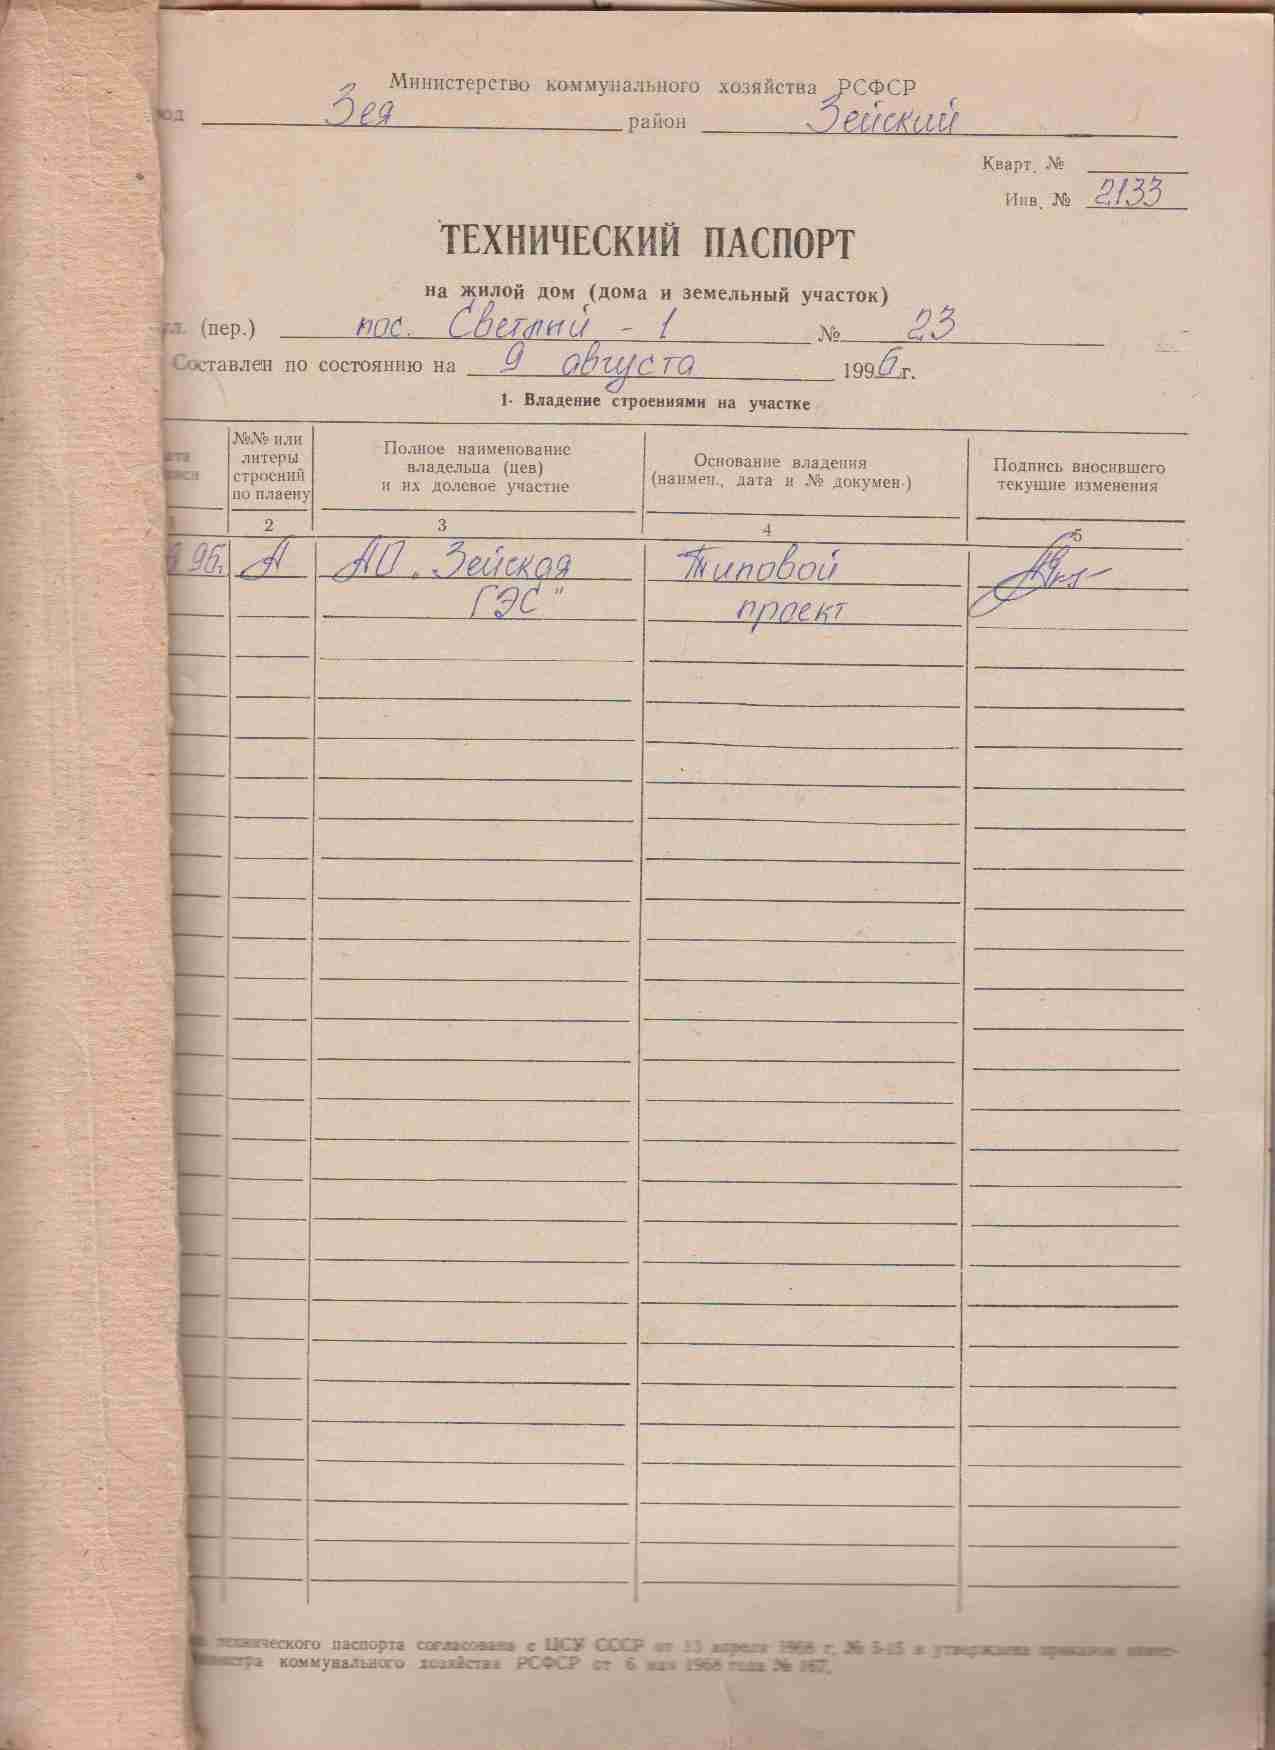 Министерство коммунального хозяйства РСФСР
од Зея район Зейский
Кварт. №
Инв. № 2133
ТЕХНИЧЕСКИЙ ПАСПОРТ
на жилой дом (дома и земельный участок)
ул. (пер.) пос. Светлый - 1 № 23
Составлен по состоянию на 9 августа 1996 г.
1. Владение строениями на участке
№№ или
литеры
строений
по плаену
Полное наименование
владельца (цев)
и их долевое участие
Основание владения
(наимен., дата и № докумен.)
Подпись вносившего
текущие изменения
1 2 3 4 5
96. А АО „Зейская Типовой
ГЭС" проект
технического паспорта согласована с ЦСУ СССР от 13 апреля 1968 г. № 5-15 и утверждена приказом
министра коммунального хозяйства РСФСР от 6 мая 1968 года № 167.